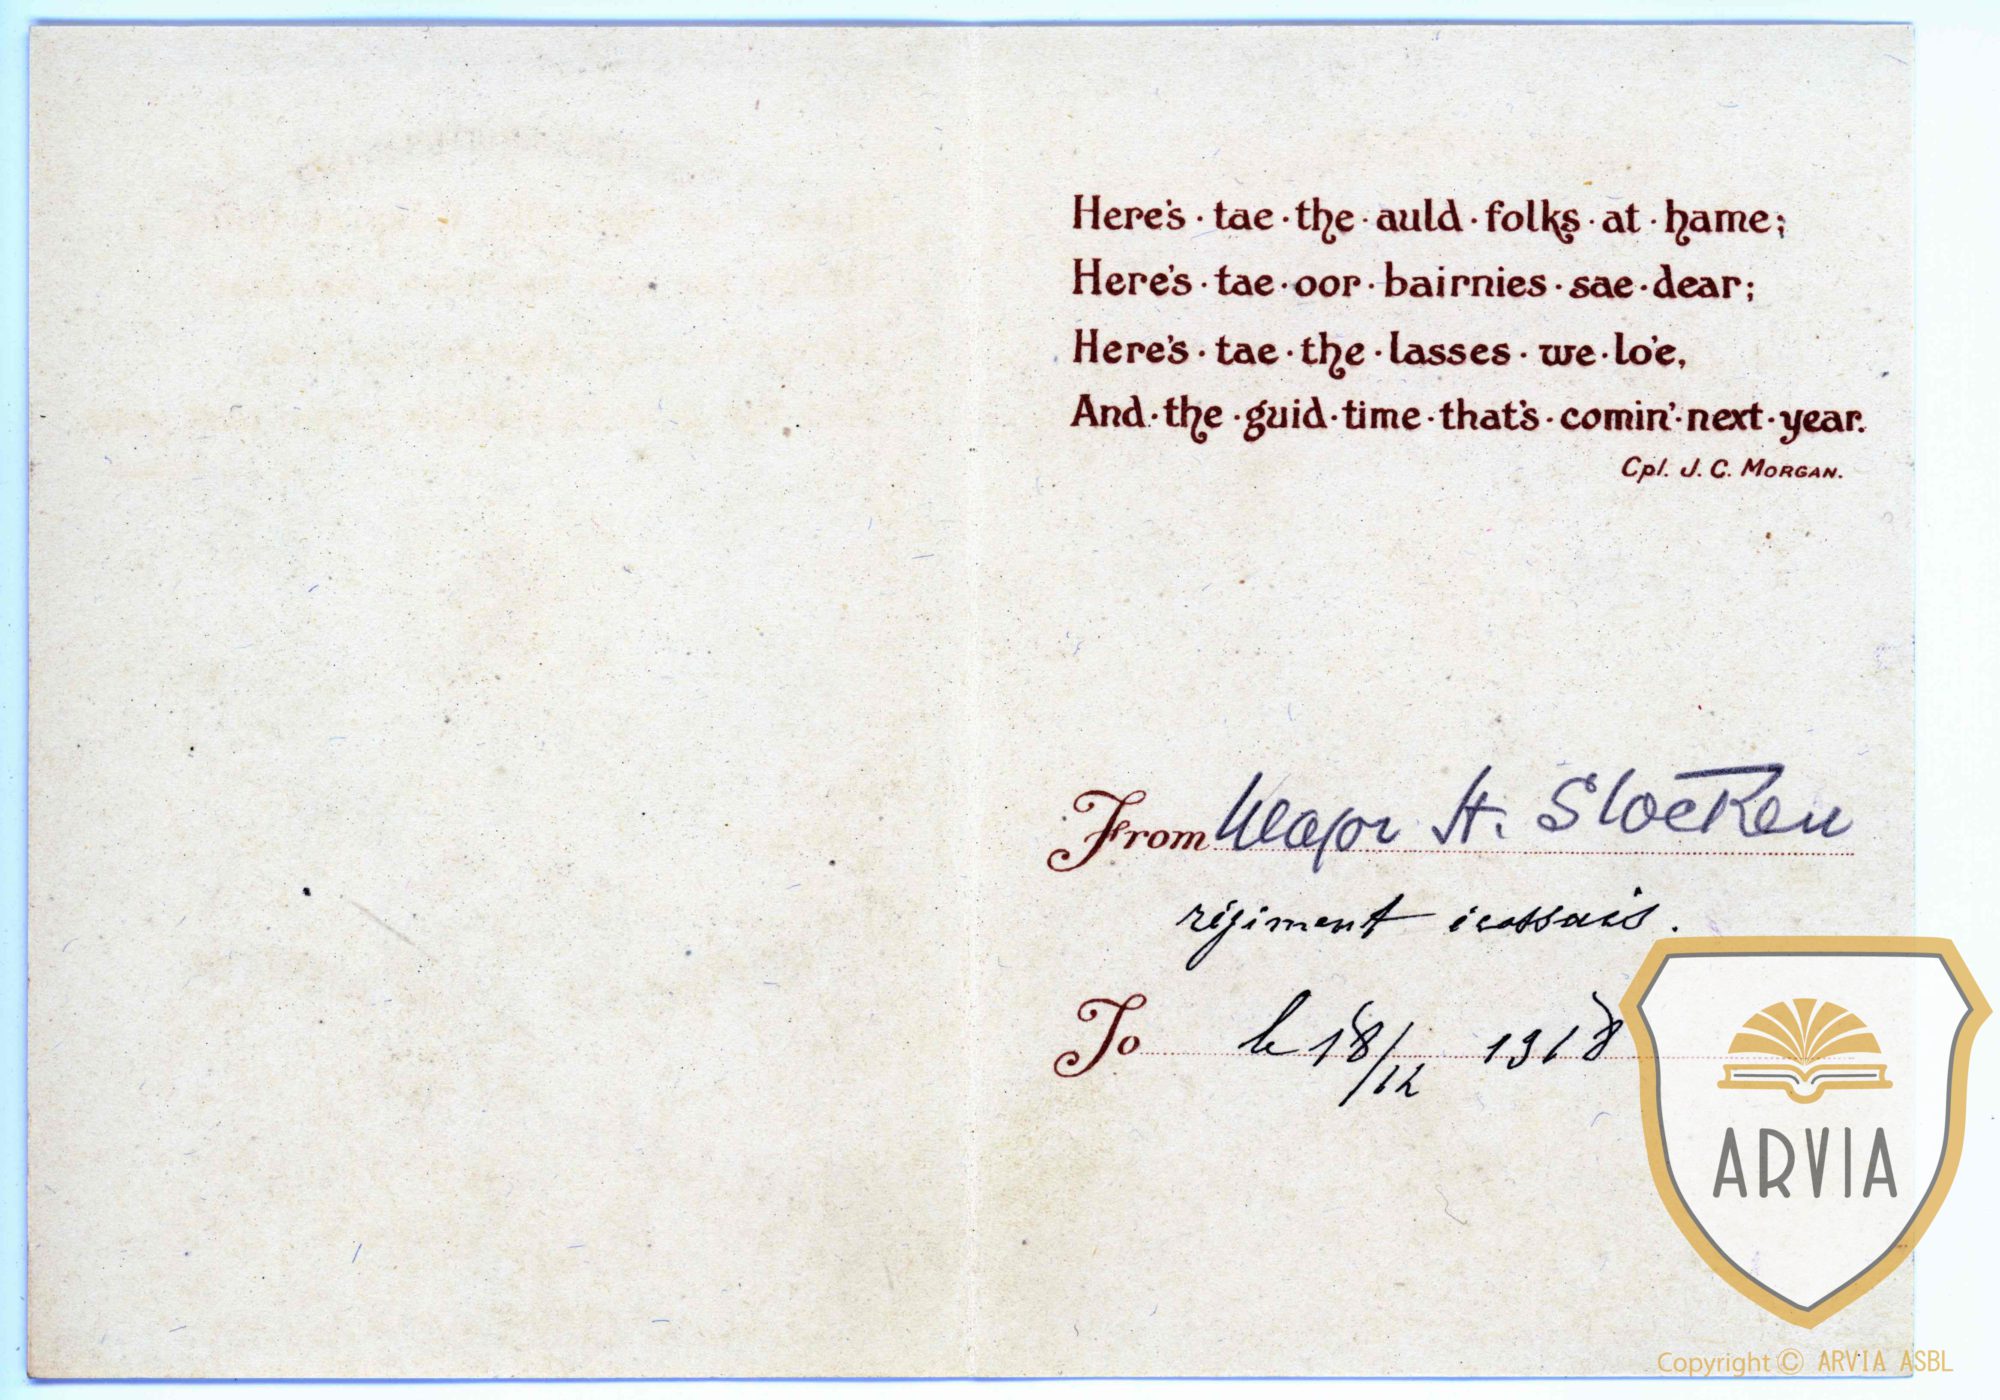 Here's · tae · the · auld · folks · at · hame;
Here's · tae · oor · bairnies · sae · dear;
Here's · tae · the · lasses · we · lo'e,
And · the · guid · time · that's · comin' · next · year.
Cpl. J. C. MORGAN.
From Major H. Stocken
régiment écossais.
To le 18/12 1918
ARVIA
Copyright © ARVIA ASBL